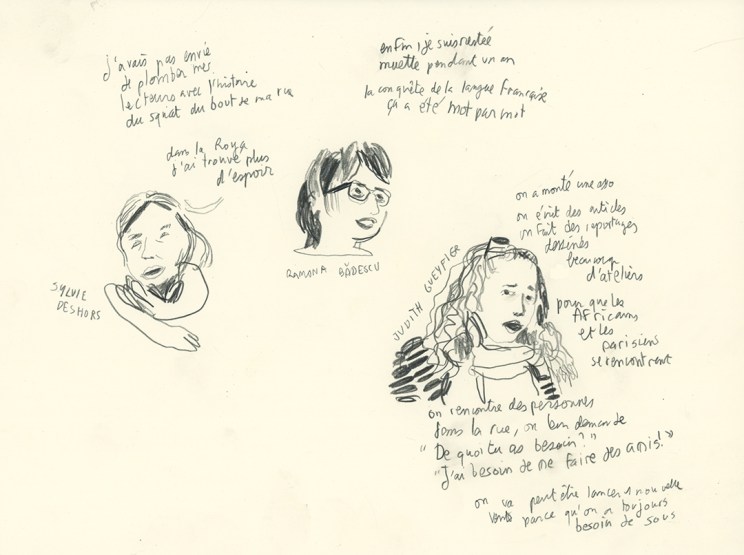 j'avais pas envie
de plomber mes
lecteurs avec l'histoire
du squat du bout de ma rue
dans la Roya
j'ai trouvé plus
d'espoir
SYLVIE
DESHORS
enfin, je suis restée
muette pendant un an
la conquête de la langue française
ça a été mot par mot
RAMONA BĂDESCU
JUDITH GUEYFIER
on a monté une asso
on écrit des articles
on fait des reportages
dessinés
beaucoup
d'ateliers
pour que les
AFricains
et les
parisiens
se rencontrent
on rencontre des personnes
dans la rue, on leur demande
"De quoi tu as besoin?"
"J'ai besoin de me faire des amis!"
on va peut être lancer 1 nouvelle
vente parce qu'on a toujours
besoin de sous